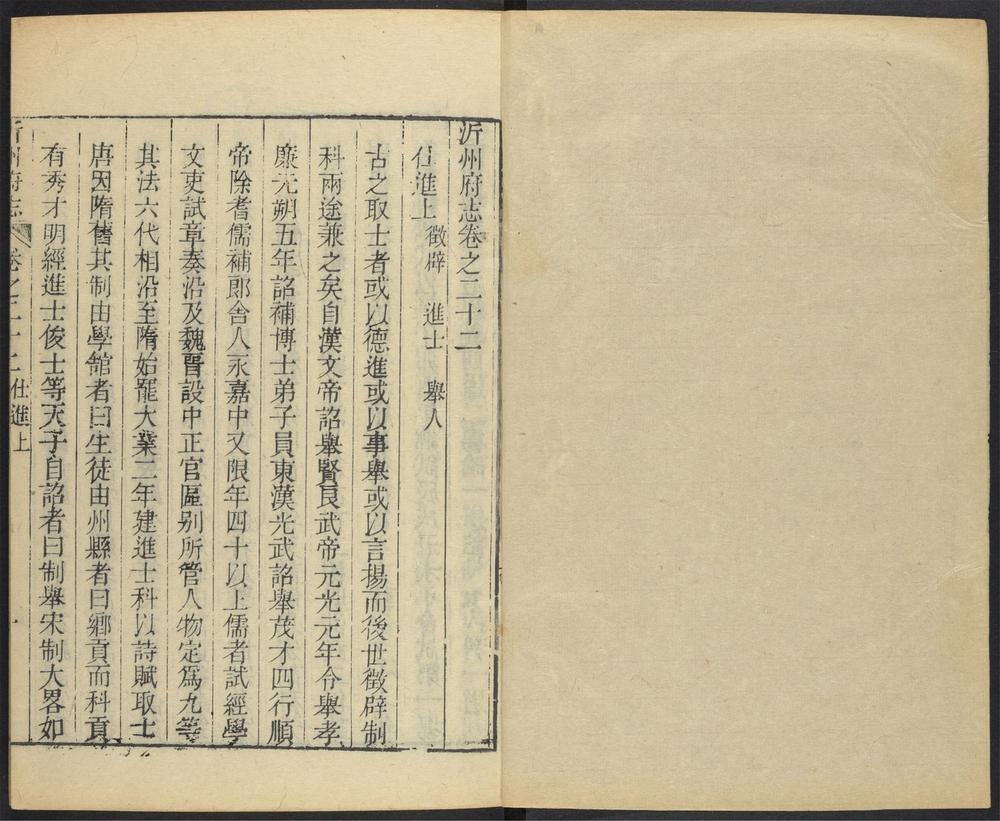 沂州府志卷之二十二
仕進上 徵辟 進士 舉人
古之取士者或以德進或以事舉或以言揚而後世徵辟制
科兩途兼之矣自漢文帝詔舉賢良武帝元光元年令舉孝
廉元朔五年詔補博士弟子員東漢光武詔舉茂才四行順
帝除耆儒補郎舍人永嘉中又限年四十以上儒者試經學
文吏試章奏沿及魏晋設中正官區别所管人物定爲九等
其法六代相沿至隋始罷大業二年建進士科以詩賦取士
唐因隋舊其制由學舘者曰生徒由州縣者曰鄉貢而科貢
有秀才明經進士俊士等天子自詔者曰制舉宋制大畧如
沂州府志 卷之二十二 仕進上 一